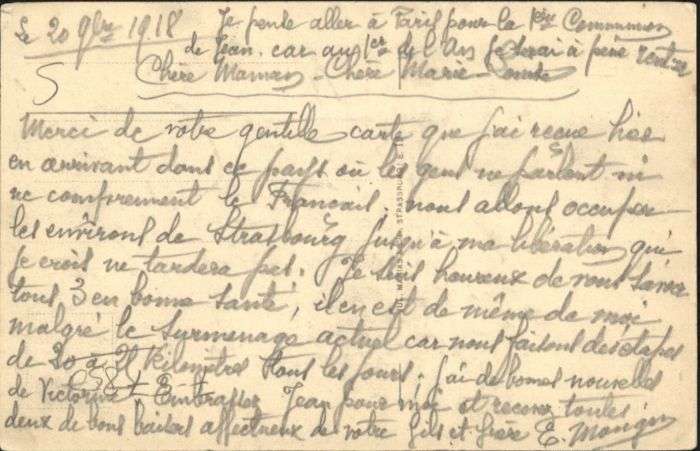 Le 20 9bre 1918
Je pense aller à Paris pour la 1ère Communion
de Jean. car au 1er de l'An je serai à peine rentrer
Chère Maman - Chère Marie-
Merci de votre gentille carte que j'ai reçue hier
en arrivant dans ce pays où les gens ne parlent ni
ne comprennent le Français. nous allons occuper
les environs de Strasbourg jusqu'à ma libération qui
je crois ne tardera pas. Je suis heureux de vous savoir
tous 3 en bonne santé, il en est de même de moi
malgré le surmenage actuel car nous faisons des étapes
de 20 à kilomètres tous les jours; j'ai de bonnes nouvelles
de Victorine. Embrasser Jean pour moi et recevez toutes
deux de bons baisers affectueux de votre fils et frère E. Mongin